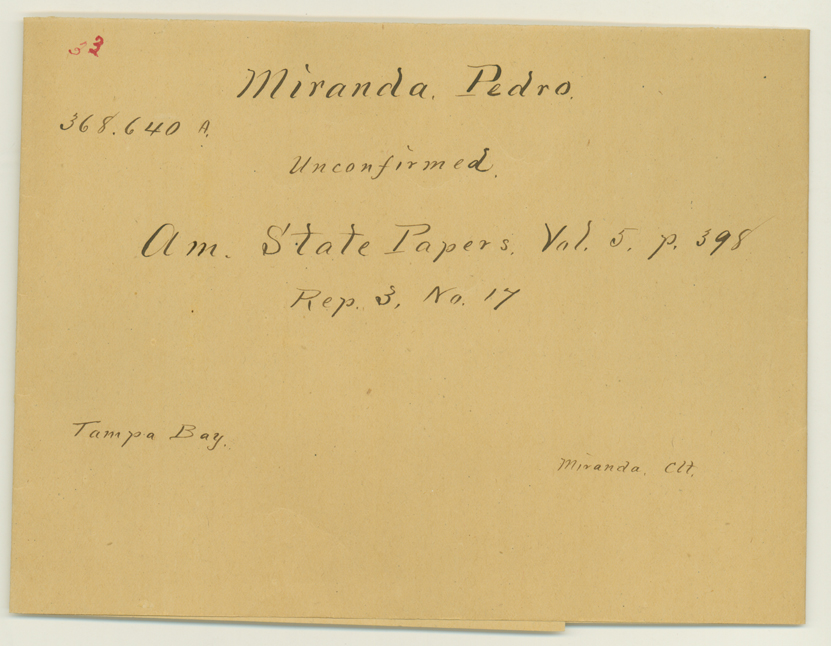 33
Miranda, Pedro.
368.640 A.
Unconfirmed.
Am. State Papers, Vol. 5, p. 398
Rep. 3, No. 17
Tampa Bay.
Miranda, Clt.